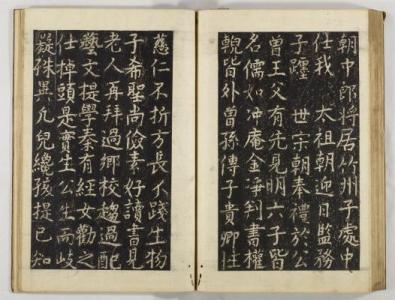 朝中郎将居竹州子處中
仕我 太祖朝迎日監務
子躔 世宗朝奉禮於公
曾王父有先見明六子皆
名儒如冲庵金凈判書權
輗皆外曾孫傳子貴卿性
慈仁不折方長不踐生物
子希聖尚儉素好讀書見
老人再拜過鄉校趨過配
藝文提學秦有經女勸之
仕掉頭是實生公生而岐
凝殊異凡兒纔孩提已知